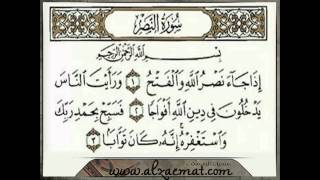 سُورَةُ النَّصْرِ
بِسْمِ اللَّهِ الرَّحْمَٰنِ الرَّحِيمِ
إِذَا جَآءَ نَصْرُ اللَّهِ وَالْفَتْحُ ١ وَرَأَيْتَ النَّاسَ
يَدْخُلُونَ فِي دِينِ اللَّهِ أَفْوَاجًا ٢ فَسَبِّحْ بِحَمْدِ رَبِّكَ
وَاسْتَغْفِرْهُ إِنَّهُ كَانَ تَوَّابًا ٣
www.alzaemat.com